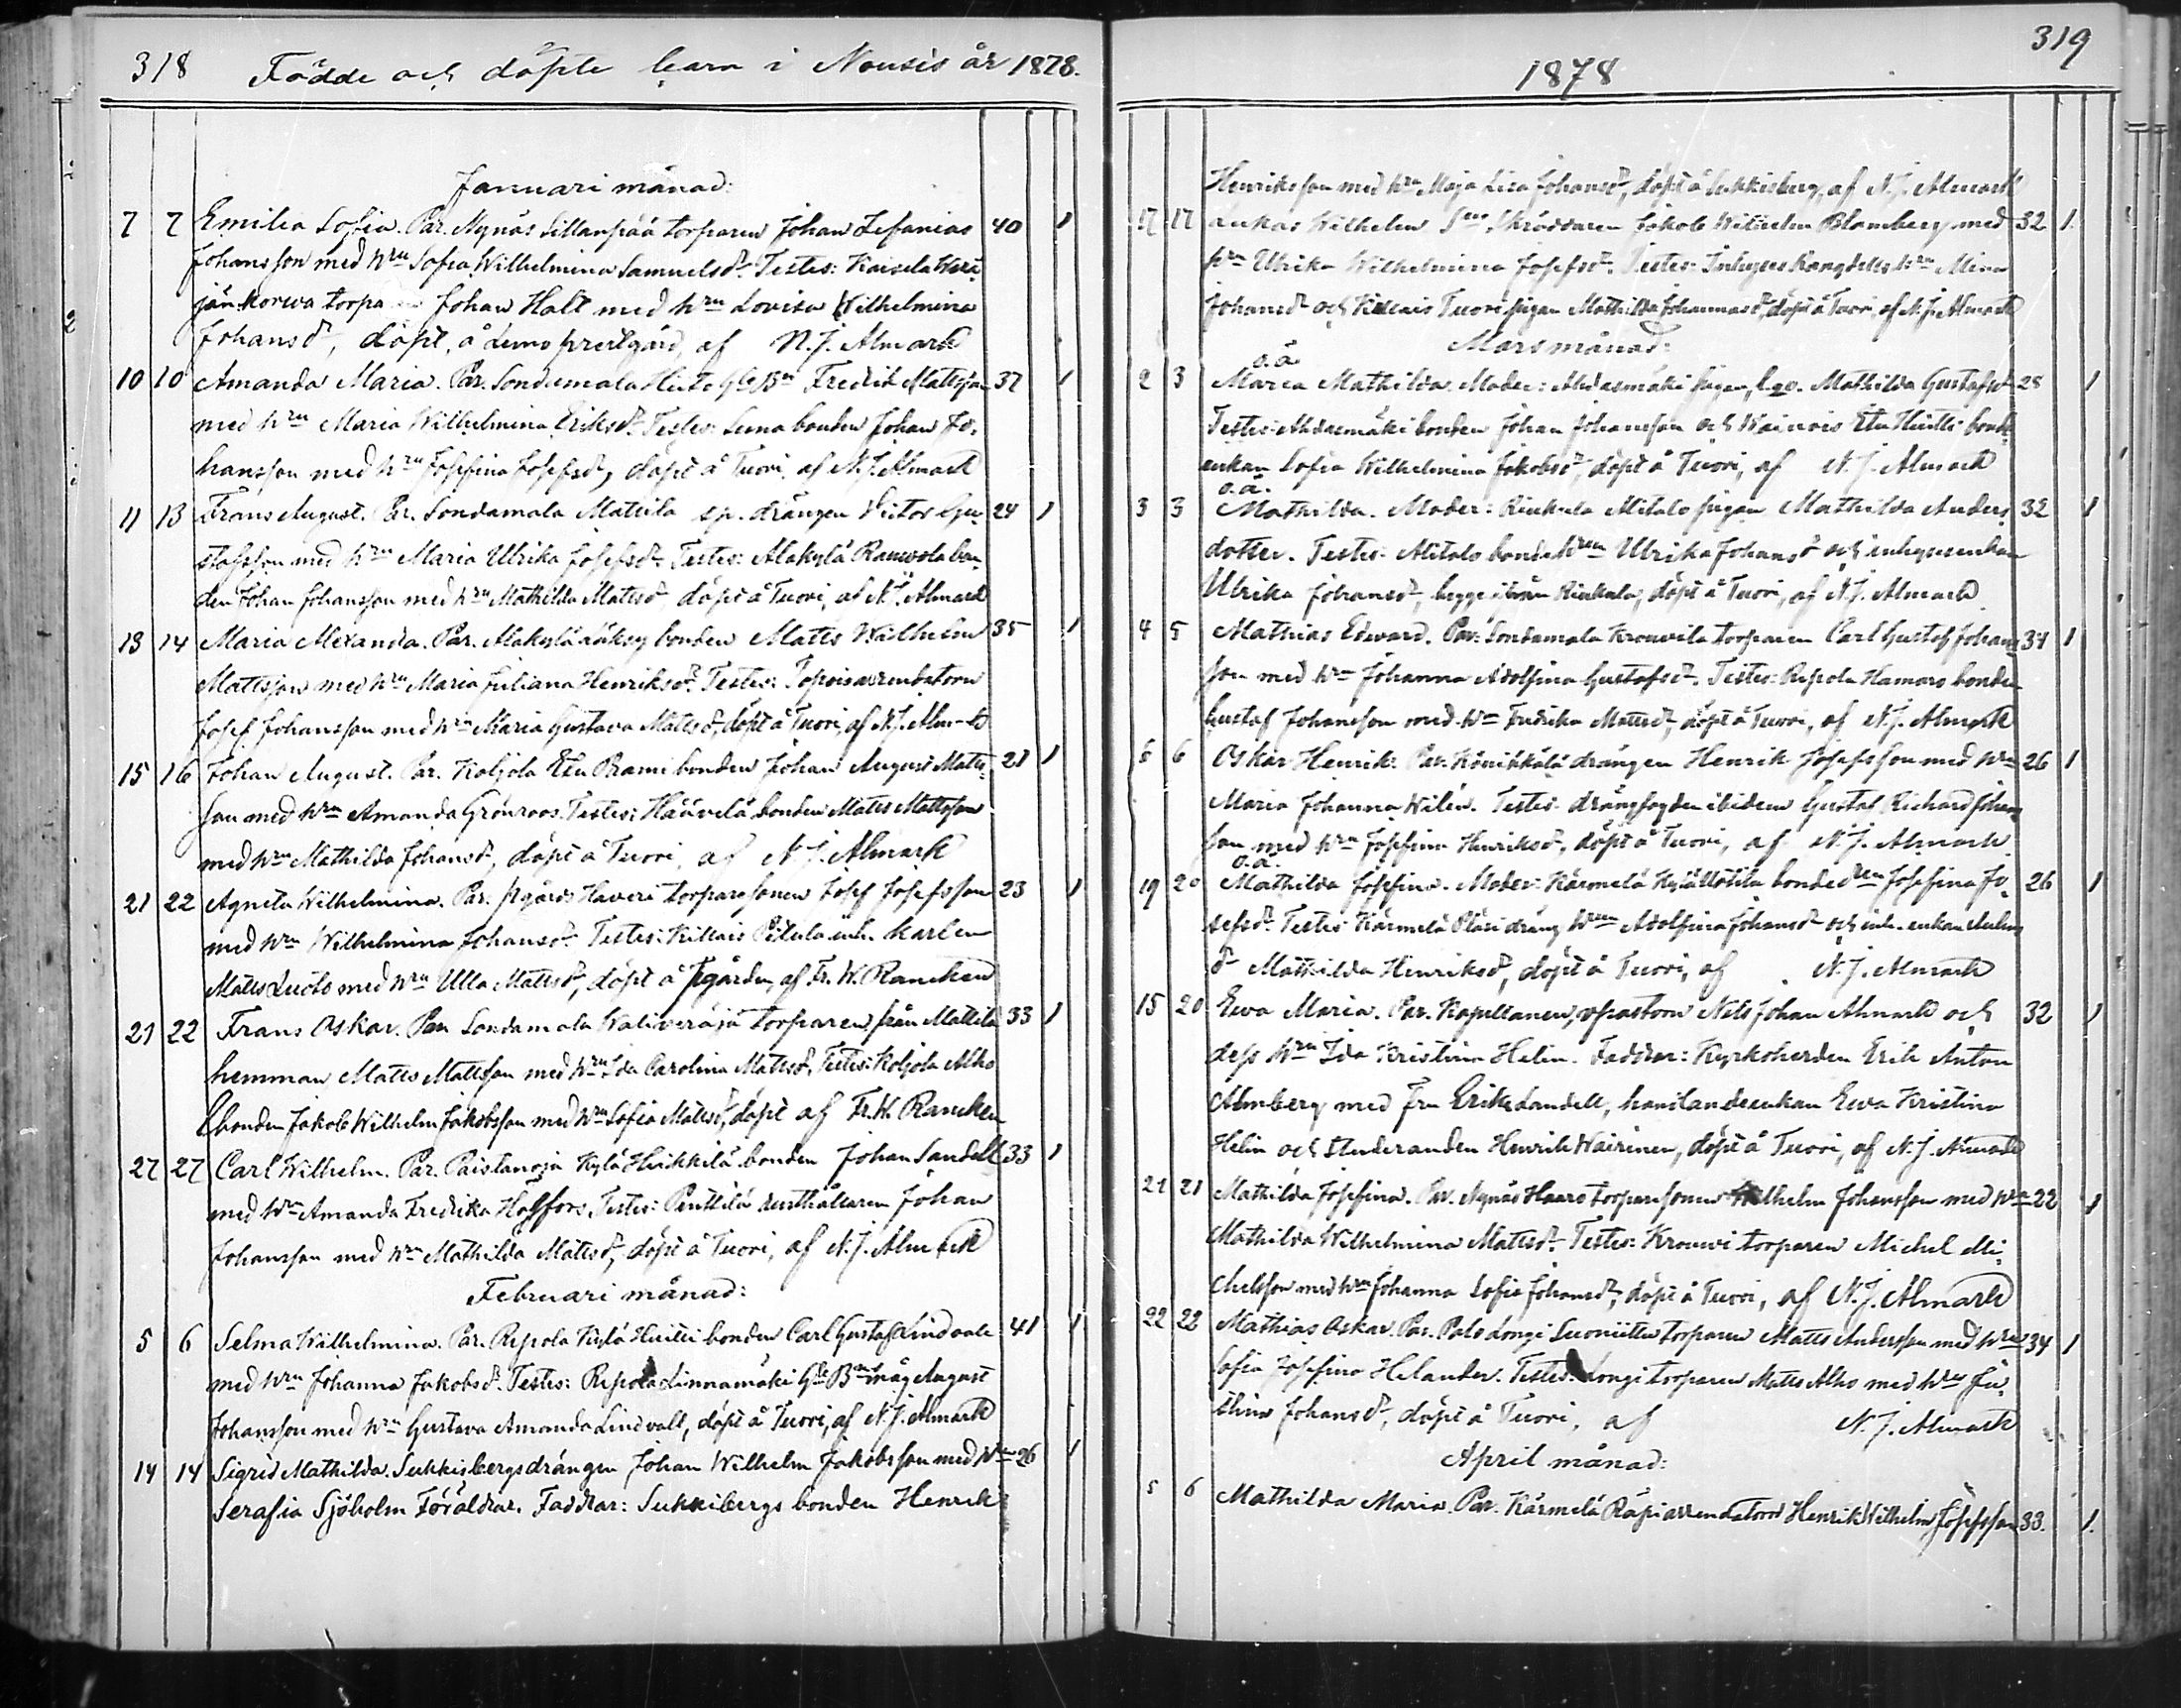 318 Födde och döpte barn i Nousis år 1878.
Januari månad:
7 7 Emilia Sofia. Par. Nynäs Sillanpää torparen Johan Zefanias 40 1
Johansson med hru Sofia Wilhelmina Samuelsdr. Testes: Kaisela
Korwa Johan Halt med hru Lovisa Wilhelmina
Johansdr, döpt, å Lemo prestgård, af N. J. Almark
10 10 Amanda Maria. Par. Sondamala Fredrik Mattsson 37 1
med hru Maria Wilhelmina Eriksdr. Testes: bonden Johan Jo-
hansson med hru Josefina Josefsdr, döpt å Tuori, af N. J. Almark
11 13 Frans August. Par. Sondamala Mattila sp. drängen Victor Gu- 24 1
stafsson med hru Maria Ulrika Josefsdr. Testes: Alakylä bon-
den Johan Johansson med hru Mathilda Mattsdr, döpt å Tuori, af N. J. Almark
13 14 Maria Alexanda. Par. Alakylä bonden Matts Wilhelm 35 1
Mattsson med hru Maria Juliana Henriksdr. Testes: arrendatorn
Josef Johansson med hru Maria Gustava Mattsdr, döpt å Tuori, af N. J.
15 16 Johan August. Par. Koljola bonden Johan August Matts- 21 1
son med hru Amanda Grönroos. Testes: Häävelä bonden Matts Mattsson
med hru Mathilda Johansdr, döpt å Tuori, af N. J. Almark
21 22 Agneta Wilhelmina. Par. Haveri torparesonen Josef Josefsson 23 1
med hru Wilhelmina Johansdr. Testes: Killais karlen
Matts med hru Ulla Mattsdr, döpt å Pgården, af Fr. W. Rancken
21 22 Frans Oskar. Par. Sondamala torparen från Mattila 33 1
hemman Matts Mattsson med hru Ida Carolina Mattsdr. Testes: Koljola Alho
bonden Jakob Wilhelm Jakobsson med hru Sofia Mattsdr, döpt af Fr. W. Rancken
27 27 Carl Wilhelm. Par. Paistanoja Kylä Heikkilä bonden Johan Sandell 33 1
med hru Amanda Fredrika Testes: Penttilä rusthållaren Johan
Johansson med hru Mathilda Mattsdr, döpt å Tuori, af N. J. Almark
Februari månad:
5 6 Selma Wilhelmina. Par. Repola Kylä Huitti bonden Carl Gustaf Lindvall 41 1
med hru Johanna Jakobsdr. Testes: Repola Linnamäki måg August
Johansson med hru Gustava Amanda Lindvall, döpt å Tuori, af N. J. Almark
14 14 Sigrid Mathilda. Sukkisbergs drängen Johan Wilhelm Jakobsson med hru 26 1
Serafia Sjöholm Föräldrar. Faddrar: Sukkibergs bonden Henrik
1878 319
Henriksson med hru Maja Lisa Johansdr, döpt å Sukkisberg, af N. J. Almark
17 17 Wilhelm Skräddaren Jakob Wilhelm Blomberg med 32 1
hru Ulrika Wilhelmina Josefsdr. Testes: hru Mina
Johansdr och Killais Tuori pigan Mathilda Johannasdr, döpt å Tuori, af N. J. Almark
Mars månad:
o.ä.
2 3 Maria Mathilda. Moder: Ahdasmäki pigan, Mathilda Gustafsdr 28 1
Testes: Ahdasmäki bonden Johan Johansson och
enkan Sofia Wilhelmina Jakobsdr, döpt å Tuori, af N. J. Almark
o.ä.
3 3 Mathilda. Moder: Rinkula Alitalo pigan Mathilda Anders 32 1
dotter. Testes: Alitalo bondehrun Ulrika Johansdr och inhysesenkan
Ulrika Johansdr, begge från Rinkula, döpt å Tuori, af N. J. Almark
4 5 Mathias Edward. Par: Sondamala Krouvila torparen Carl Gustaf Johans 34 1
son med hru Johanna Adolfina Gustafsdr. Testes: Repola Hamaro bonden
Gustaf Johansson med hru Fredrika Mattsdr, döpt å Tuori, af N. J. Almark
6 6 Oskar Henrik. Par. Könikkälä drängen Henrik Josefsson med hru 26 1
Maria Johanna Wilén. Testes: drängfogden ibidem Gustaf Richard Johans
son med hru Josefina Henriksdr, döpt å Tuori, af N. J. Almark
o.ä.
19 20 Mathilda Josefina. Moder: Kärmelä bondedru Josefina Jo- 26 1
sefsdr. Testes: Kärmelä dräng hrun Adolfina Johansdr och enkan
Mathilda Henriksdr, döpt å Tuori, af N. J. Almark
15 20 Ewa Maria. Par. Kapellanen, vpastorn Nils Johan Almark och 32 1
dess hru Ida Kristina Helin. Faddrar: Kyrkoherden Erik Anton
Almberg med fru Erika Landell, handlandeenkan Ewa Kristina
Helin och Studeranden Henrik Wairinen, döpt å Tuori, af N. J. Almark
21 21 Mathilda Josefina. Par. Nynäs Haaro torparesonen Wilhelm Johansson med hru 22 1
Mathilda Wilhelmina Mattsdr. Testes: Krouwi torparen Michel Mi-
chelsson med hru Johanna Sofia Johansdr, döpt å Tuori, af N. J. Almark
22 22 Mathias Oskar. Par. Palo Longi torparen Matts Andersson med hru 34 1
Sofia Josefina Helander. Testes: Longi torparen Matts Alho med hru Ju-
stina Johansdr, döpt å Tuori, af N. J. Almark
April månad:
5 6 Mathilda Maria. Par. Kärmelä Räpi arrendatorn Henrik Wilhelm Josefsson 33. 1.